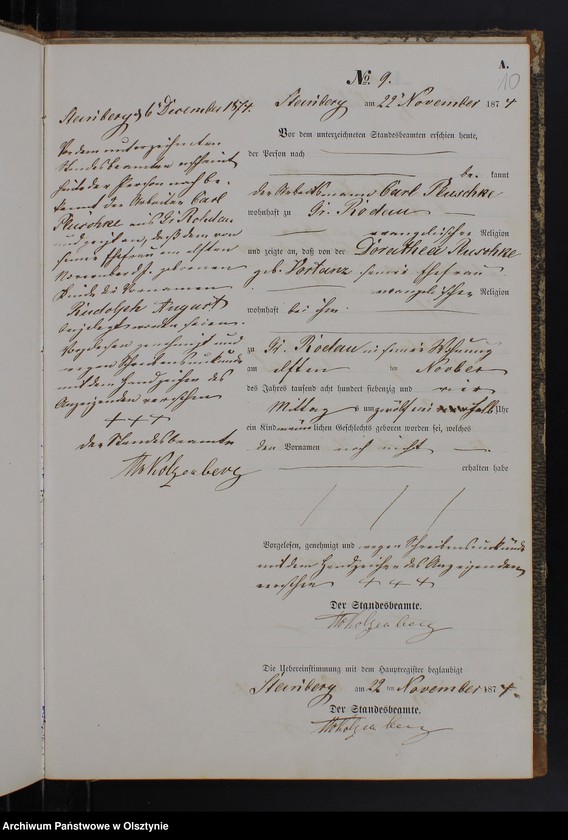 A.
10
No. 9.
Steinberg am 22 November 1874
Vor dem unterzeichneten Standesbeamten erschien heute,
der Person nach
be kannt
der Arbeitsmann Carl Ruschke
wohnhaft zu Gr. Rödau
evangelischer Religion
und zeigte an, daß von der Dorothea Ruschke
geb. seine Ehefrau
evangelischer Religion
wohnhaft bei ihm
zu Gr. Rödau in seiner Wohnung
am elften ten November
des Jahres tausend acht hundert siebenzig und vier
Mittag s um zwölf ein halb Uhr
ein Kind männlichen Geschlechts geboren worden sei, welches
den Vornamen noch nicht
erhalten habe
Vorgelesen, genehmigt und wegen Schreibensunkunde
mit dem Handzeichen des Anzeigenden
versehen + + +
Der Standesbeamte.
Die Uebereinstimmung mit dem Hauptregister beglaubigt
Steinberg am 22 ten November 1874.
Der Standesbeamte.
Steinberg d 6 December 1874.
Vor dem unterzeichneten
Standesbeamten erscheint
heute der Person nach be-
kannt der Arbeiter Carl
Ruschke aus Gr. Rohdau
und zeigt an, daß dem von
seiner Ehefrau am elften
November d. J. geborenen
Kinde die Vornamen
Rudolph August
beigelegt worden seien.
Vorgelesen genehmigt und
wegen Schreibensunkunde
mit dem Handzeichen des
Anzeigenden versehen
+ + +
der Standesbeamte
Archiwum Państwowe w Olsztynie